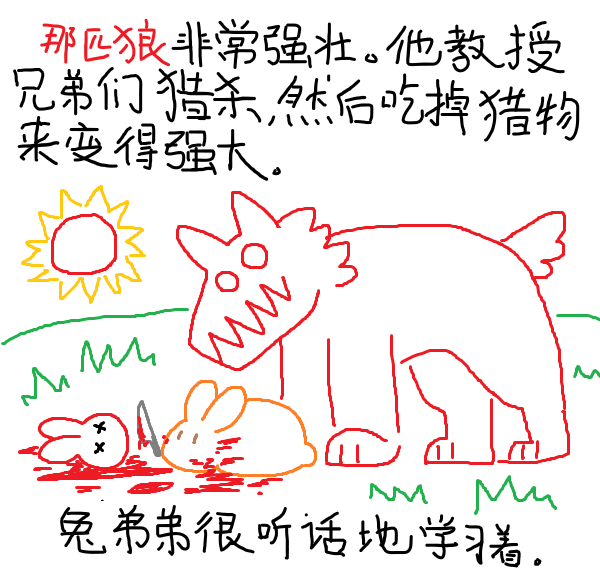 那匹狼非常强壮。他教授
兄弟们猎杀,然后吃掉猎物
来变得强大。
兔弟弟很听话地学习着.